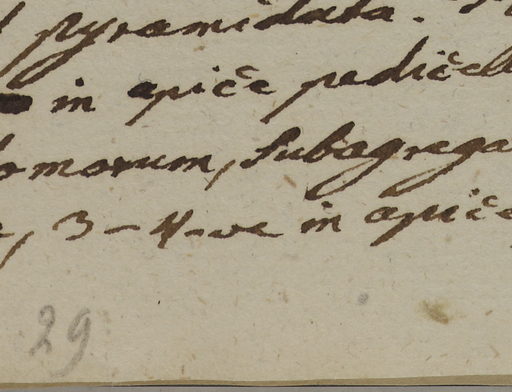 pyramidata.
in apice pedicell
omorum, Subagrega
3-4-ve in apice
29